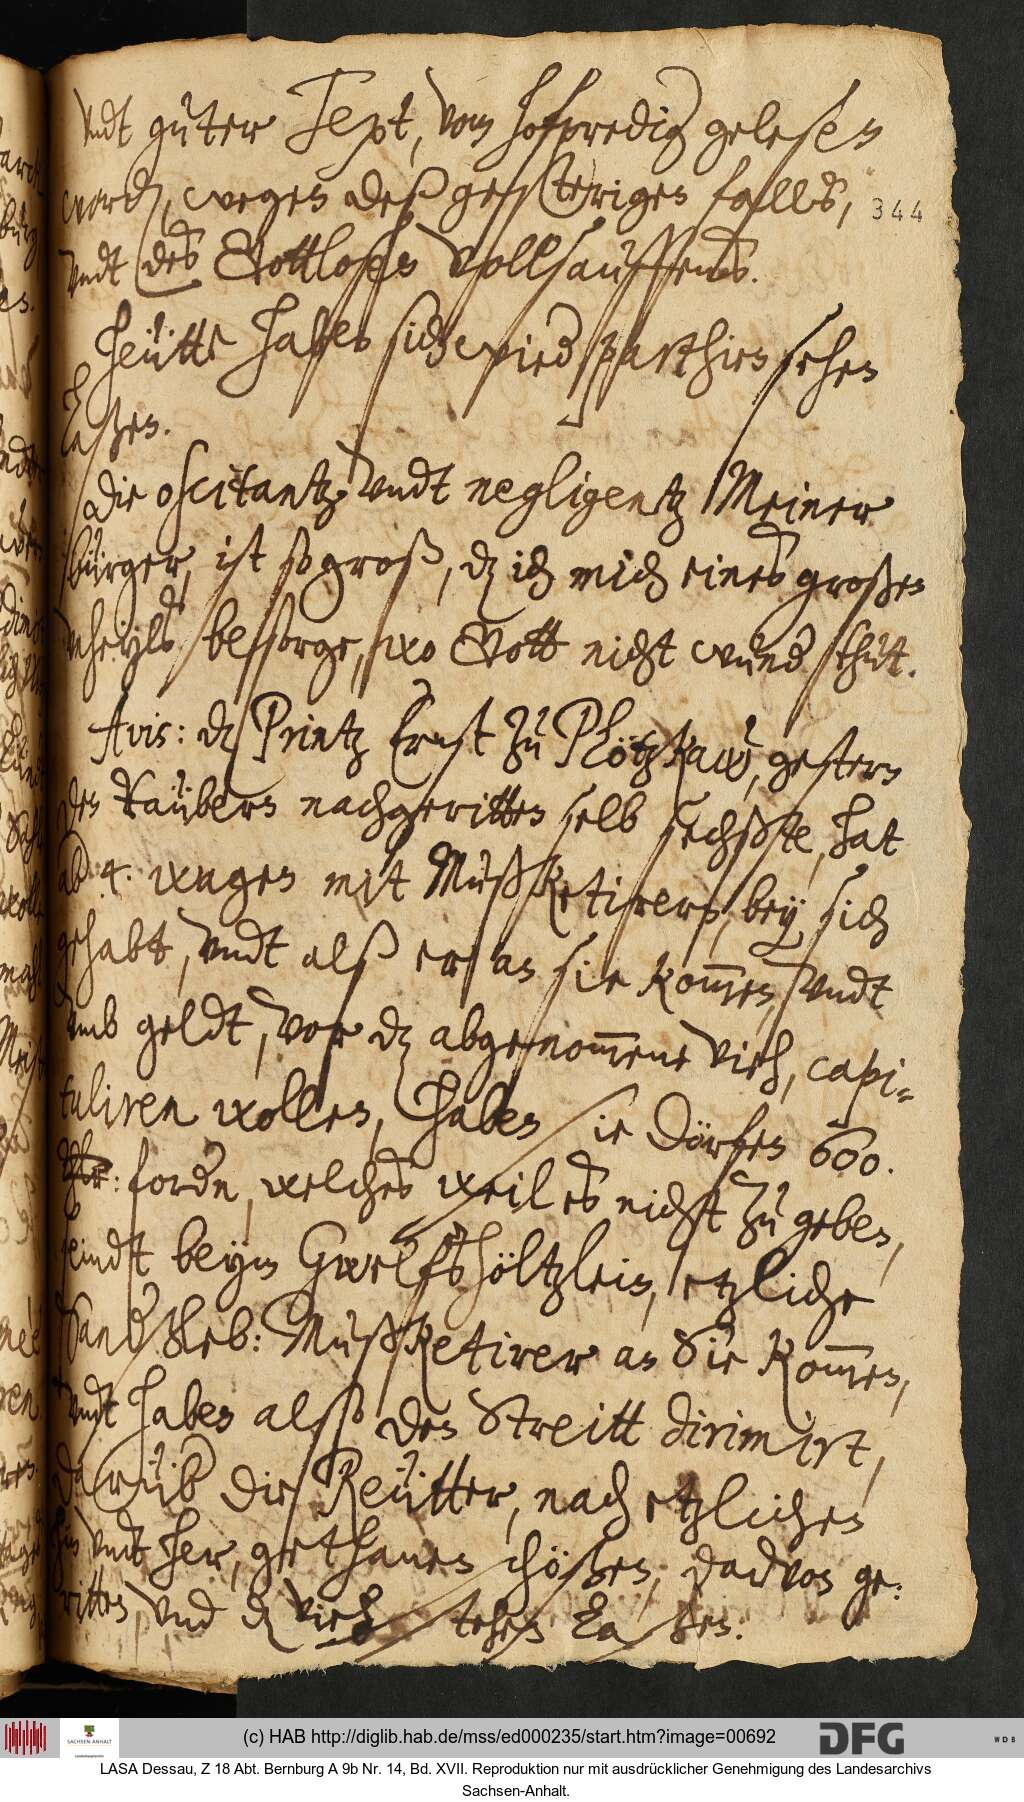 vndt guter Text, vom hofpredig gelesen
word, wegen deß gesterigen falls,
344
vndt des Gottlosen Vollsauffens.
Heütte haben sich wied parthien sehen
laßen.
Die oscitantz, vndt negligentz Meiner
bürger, ist so groß, dz ich mich eines großen
vnheylß besorge, wo Gott nicht wund[er] thut.
Avis: dz Printz Ernst zu Plötzkaw, gestern
den Raübern nachgeritten selb sechste, hat
ab[er] 4. wagen mit Mußketirern, bey sich
gehabt, vndt alß er an sie kom̅en, vndt
vmb geldt, vor dz abgenom̅ene vieh, capi-
tuliren wollen, haben sie dörfen 600.
Thlr: fordn, welches weil es nicht zu geben,
seindt beym Gwelfshöltzlein, etzliche
Sand Sleb: Mußketirer an Sie kom̅en,
vndt haben also den Streitt dirimirt,
darüb die Reütter, nach etzlichen
hin vndt her, gethanen schößen, davon ge:
ritten, vnd dz vieh stehen laßen.
(c) HAB http://diglib.hab.de/mss/ed000235/start.htm?image=00692
SACHSEN-ANHALT
DFG
WDB
LASA Dessau, Z 18 Abt. Bernburg A 9b Nr. 14, Bd. XVII. Reproduktion nur mit ausdrücklicher Genehmigung des Landesarchivs
Sachsen-Anhalt.